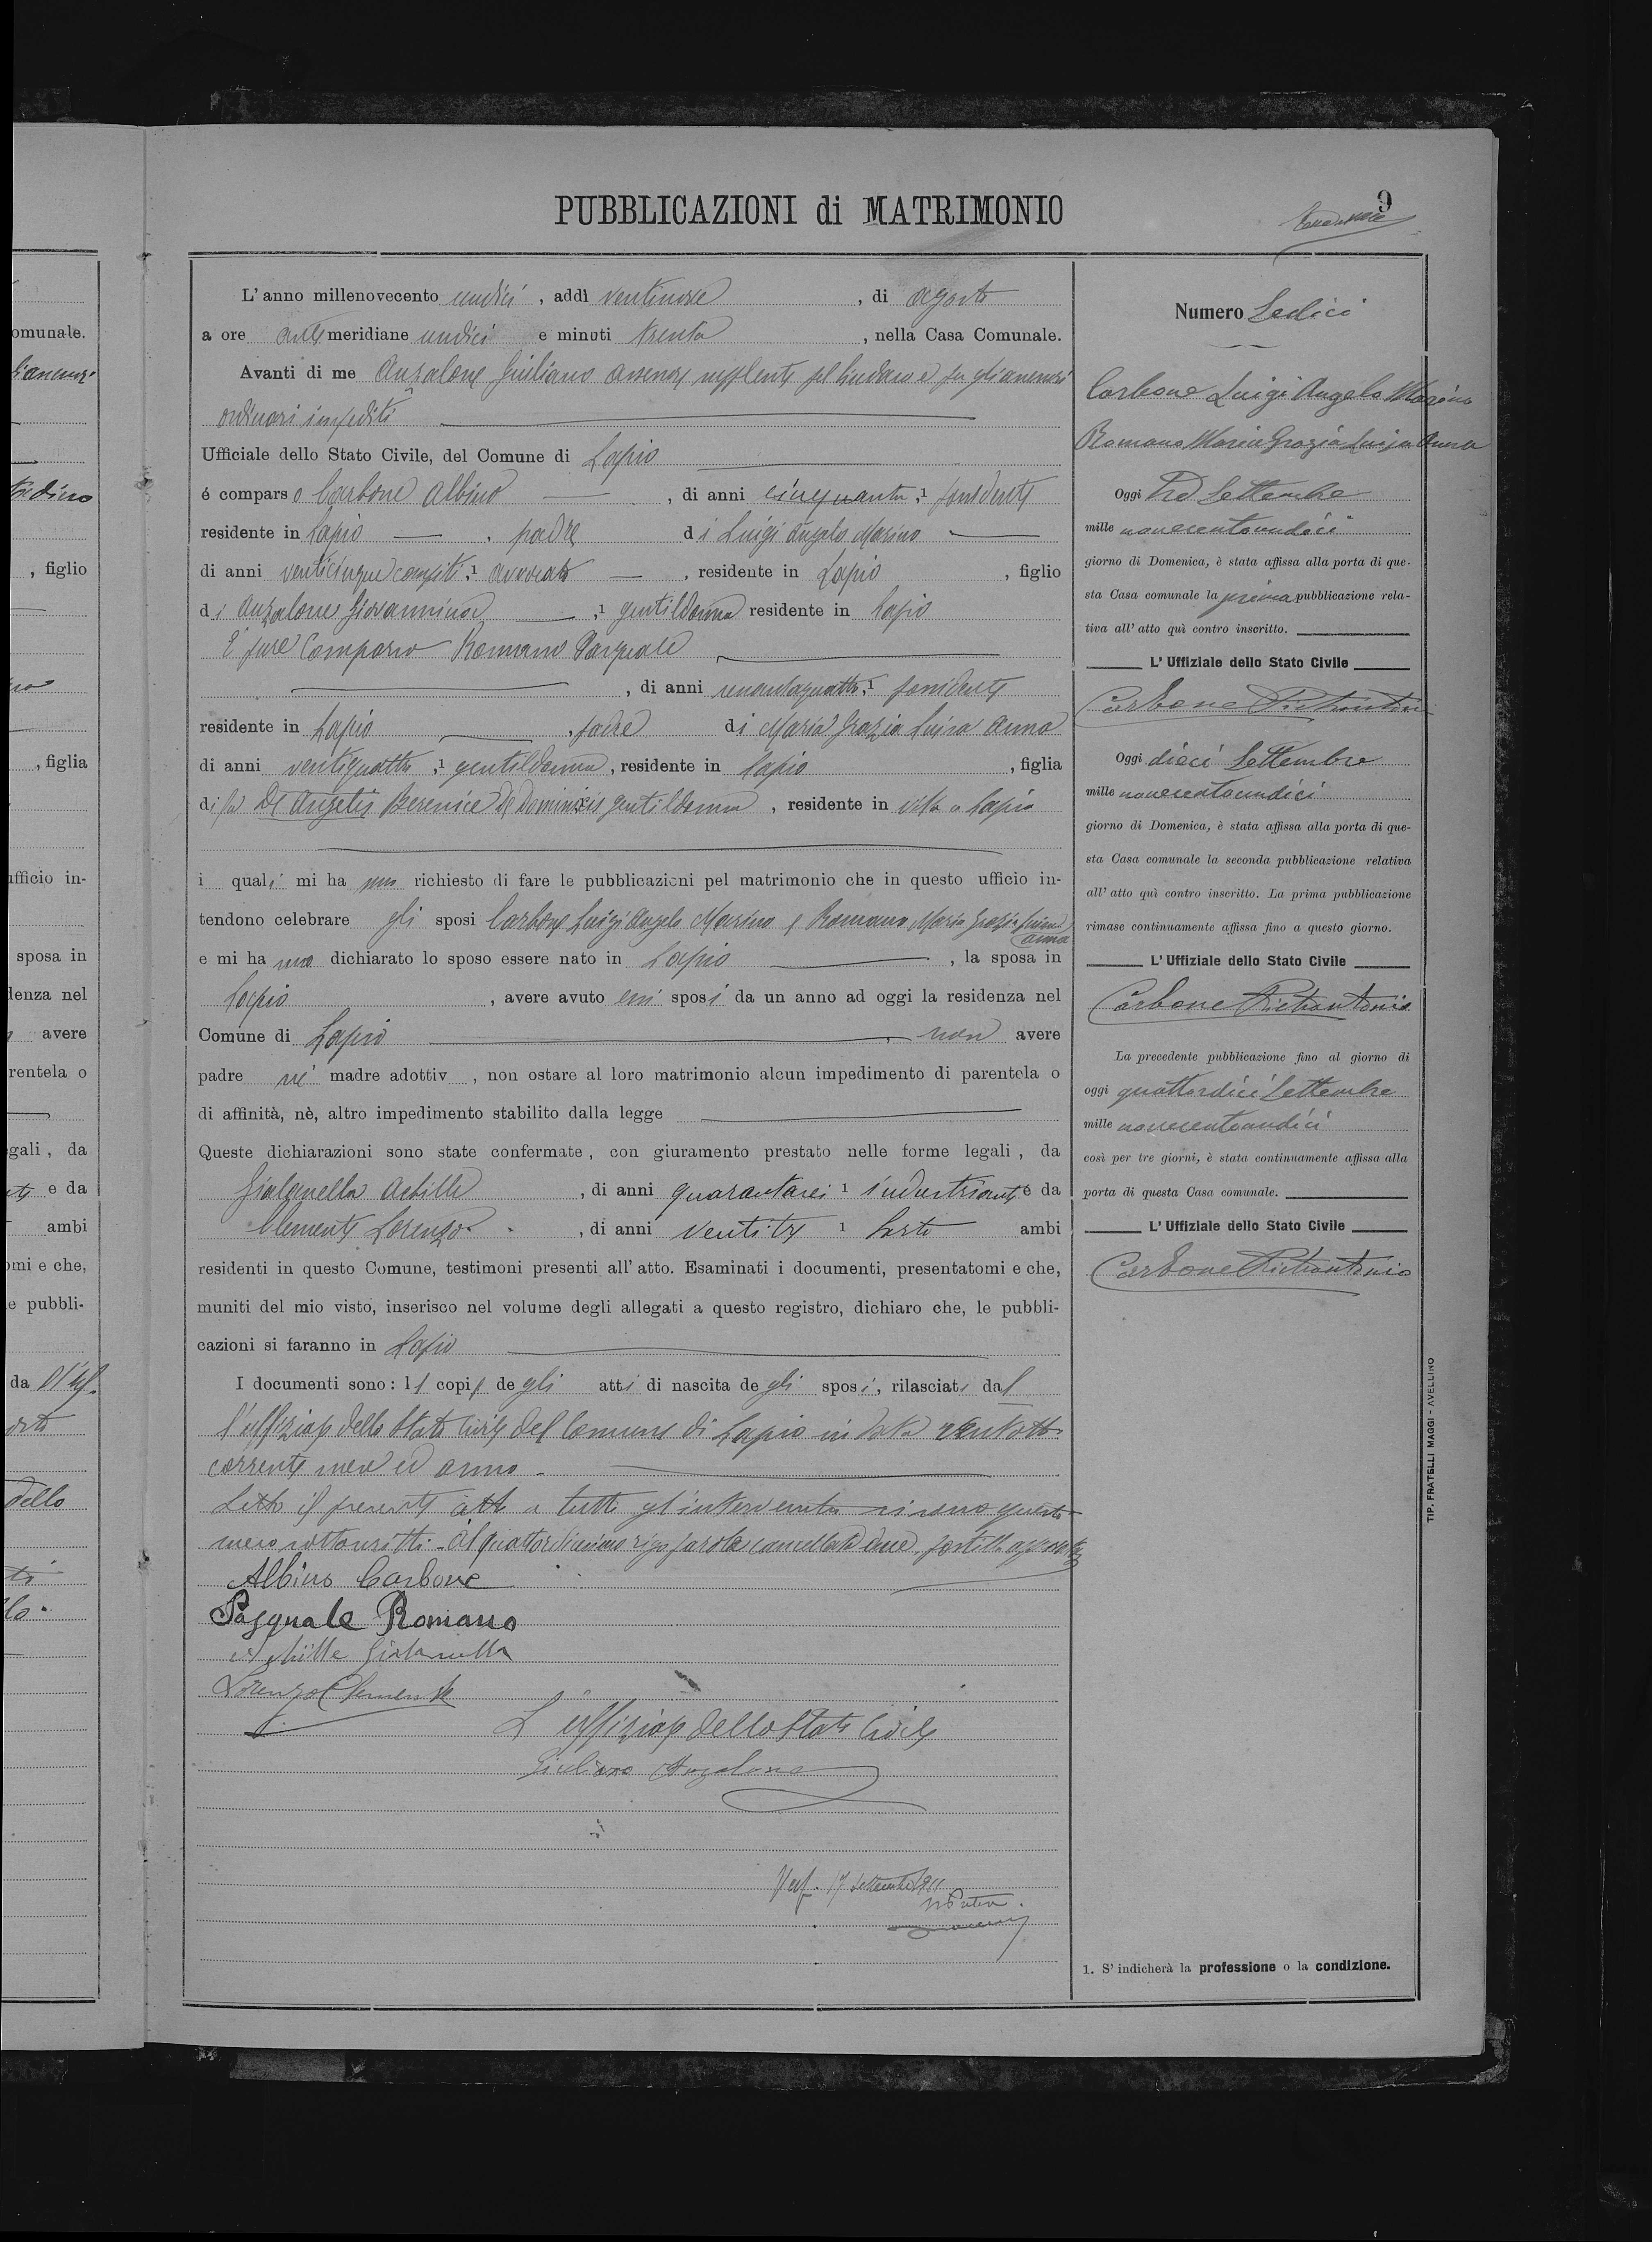 omunale.
, figlio
, figlia
ufficio in-
sposa in
denza nel
avere
rentela o
gali, da
e da
ambi
omi e che,
e pubbli-
da
dello
PUBBLICAZIONI di MATRIMONIO
9
L'anno millenovecento undici, addì ventinove, di agosto
a ore antimeridiane undici e minuti trenta, nella Casa Comunale.
Avanti di me Anzalone Giuliano assessore supplente pel Sindaco e per gli assessori
ordinari impediti
Ufficiale dello Stato Civile, del Comune di Lapio
é comparso Carbone Albino, di anni cinquanta,1 possidente
residente in Lapio, padre di Luigi Angelo Marino
di anni venticinque compiti,1 avvocato, residente in Lapio, figlio
di Anzalone Giovannina,1 gentildonna residente in Lapio
È pure comparso Romano Pasquale
, di anni,1 possidente
residente in Lapio, padre di Maria Grazia Luisa Anna
di anni ventiquattro,1 gentildonna, residente in Lapio, figlia
di fu De Angelis Berenice De Dominicis gentildonna, residente in vita a Lapio
i quali mi hanno richiesto di fare le pubblicazioni pel matrimonio che in questo ufficio in-
tendono celebrare gli sposi Carbone Luigi Angelo Marino e Romano Maria Grazia Luisa
Anna
e mi hanno dichiarato lo sposo essere nato in Lapio, la sposa in
Lapio, avere avuto essi sposi da un anno ad oggi la residenza nel
Comune di Lapio, non avere
padre nè madre adottiv, non ostare al loro matrimonio alcun impedimento di parentela o
di affinità, nè, altro impedimento stabilito dalla legge
Queste dichiarazioni sono state confermate, con giuramento prestato nelle forme legali, da
Gialanella Achille, di anni quarantasei 1 industriante e da
Clemente Lorenzo, di anni ventitre 1 sarto ambi
residenti in questo Comune, testimoni presenti all'atto. Esaminati i documenti, presentatomi e che,
muniti del mio visto, inserisco nel volume degli allegati a questo registro, dichiaro che, le pubbli-
cazioni si faranno in Lapio
I documenti sono: le copie degli atti di nascita degli sposi, rilasciati dal
l'uffiziale dello Stato Civile del Comune di Lapio in data ventotto
corrente mese ed anno.
Letto il presente atto a tutti gl'intervenuti si sono questi
meco sottoscritti. Al quattordicesimo rigo parole cancellate due, postilla approvata
Albino Carbone
Pasquale Romano
Achille Gialanella
Lorenzo Clemente
L'uffiziale dello Stato Civile
Giuliano Anzalone
Verif. 17 Settembre 1911
Numero Sedici
Carbone Luigi Angelo Marino
Romano Maria Grazia Luisa Anna
Oggi Tre Settembre
mille novecentoundici
giorno di Domenica, è stata affissa alla porta di que-
sta Casa comunale la prima pubblicazione rela-
tiva all'atto quì contro inscritto.
L'Uffiziale dello Stato Civile
Carbone Pietrantonio
Oggi dieci Settembre
mille novecentoundici
giorno di Domenica, è stata affissa alla porta di que-
sta Casa comunale la seconda pubblicazione relativa
all'atto quì contro inscritto. La prima pubblicazione
rimase continuamente affissa fino a questo giorno.
L'Uffiziale dello Stato Civile
Carbone Pietrantonio
La precedente pubblicazione fino al giorno di
oggi quattordici Settembre
mille novecentoundici
così per tre giorni, è stata continuamente affissa alla
porta di questa Casa comunale.
L'Uffiziale dello Stato Civile
Carbone Pietrantonio
1. S'indicherà la professione o la condizione.
TIP. FRATELLI MAGGI - AVELLINO